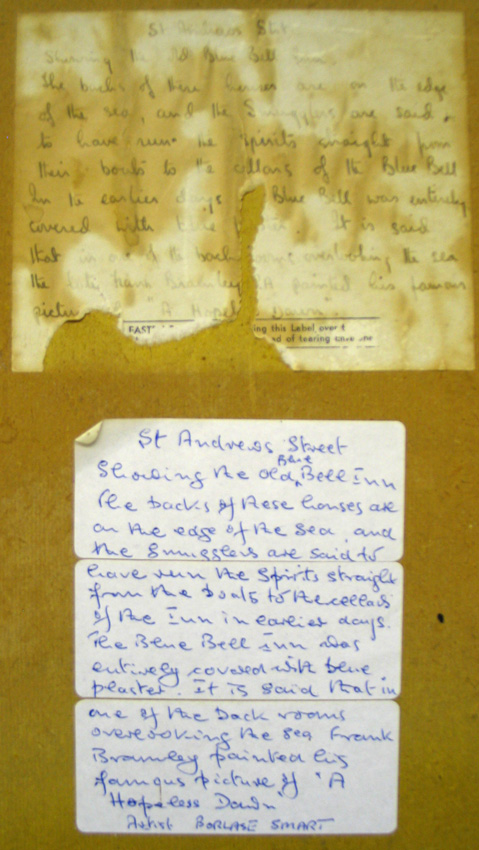 St Andrews Stret
Showing the Old Blue Bell Inn.
The backs of these houses are on the edge
of the sea, and the Smugglers are said
to have run the spirits straight from
their boats to the cellars of the Blue Bell
In the earlier days Blue Bell was entirely
covered with blue It is said
that in one of the back rooms overlooking the sea
the late Frank Bramley RA painted his famous
picture "A Hopel Dawn.
FAST ing this Label over t
ed of tearing
St Andrews Street
Showing the Old Blue Bell Inn
The backs of these houses are
on the edge of the sea, and
the Smugglers are said to
have run the Spirits straight
from the boats to the cellars
of the Inn in earlier days.
The Blue Bell Inn was
entirely covered with blue
plaster. It is said that in
one of the back rooms
overlooking the sea Frank
Bramley painted his
famous picture of "A
Hopeless Dawn
Artist BORLASE SMART